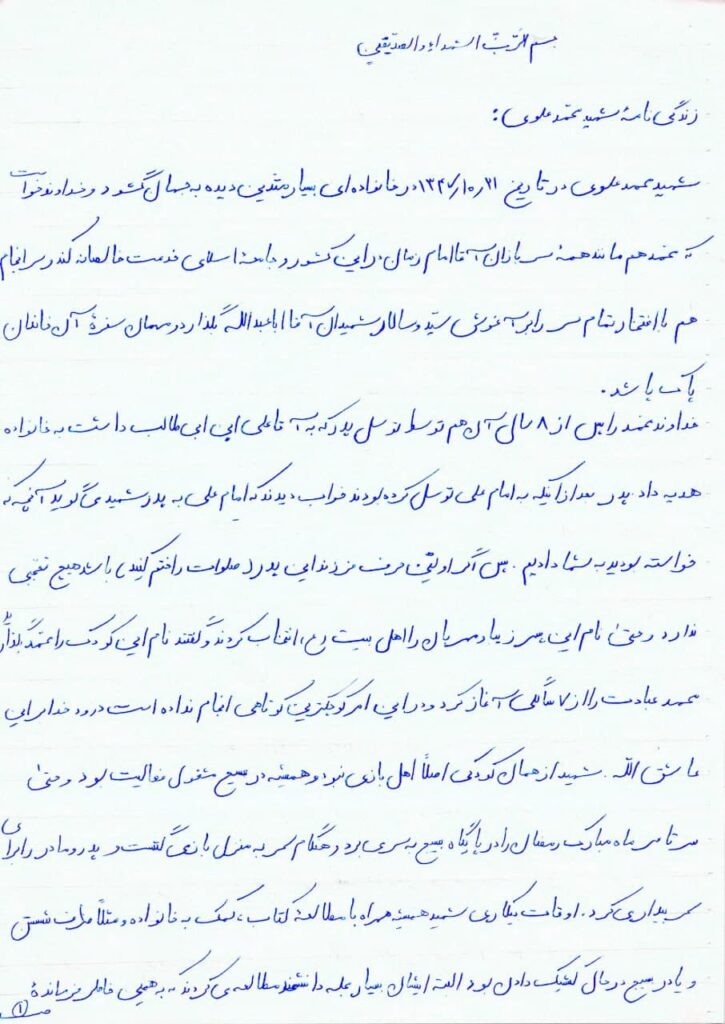 بسم رب الشهداء والصدیقین
زندگی نامهٔ شهید محمد علوی:
شهید محمد علوی در تاریخ ۱۳۴۷/۱۰/۲۱ در خانواده ای بسیار متدین دیده به جهان گشود و خداوند خواست
که محمد هم مانند همهٔ سربازان آقا امام زمان در این کشور و جامعهٔ اسلامی خدمت خالصانه کند و سرانجام
هم با افتخار تمام سر را بر آغوش سیّد و سالار شهیدان آقا اباعبدالله بگذارد و مهمان سفرهٔ آن خاندان
پاک باشد.
خداوند محمد را پس از ۸ سال آن هم توسط توسل پدر که به آقا علی ابن ابی طالب داشت به خانواده
هدیه داد. پدر بعد از آنکه به امام علی توسل کرده بودند خواب دیدند که امام علی به پدر شهید می گوید آنچه که
خواسته بودید به شما دادیم. پس اگر اولین حرف فرزند این پدر (صلوات را ختم کنید) باشد هیچ تعجبی
ندارد و حتیٰ نام این پسر زیبا و مهربان را اهل بیت (ع) انتخاب کردند و گفتند نام این کودک را محمد بگذارید
محمد عبادت را از ۷ سالگی آغاز کرد و در این امر کوچکترین کوتاهی انجام نداده است درود خدا بر این
عاشق الله. شهید از همان کودکی اصلاً اهل بازی نبود و همیشه در بسیج مشغول فعالیت بود و حتیٰ
سرتاسر ماه مبارک رمضان را در پایگاه بسیج به سر می برد و هنگام سحر به منزل باز می گشت و پدر و مادر را برای
سحر بیدار می کرد. اوقات بیکاری شهید همیشه همراه با مطالعهٔ کتاب، کمک به خانواده و مثلاً ظرف شستن
و یا در بسیج در حال کشیک دادن بود البته ایشان بسیار مجله دانشمند مطالعه می کردند که به همین خاطر فرماندهٔ
۱